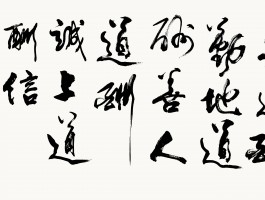 勤地道
酬善人
道酬
誠上道
酬信